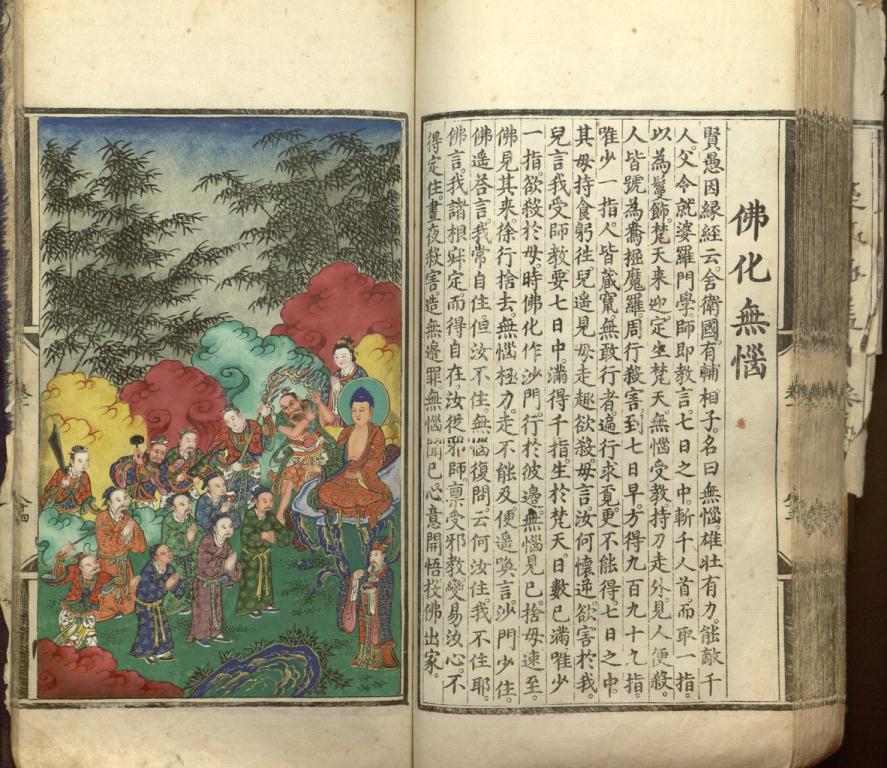 佛化無惱
賢愚因緣經云。舍衛國。有輔相子。名曰無惱。雄壯有力。能敵千
人。父令就婆羅門學。師即教言。七日之中。斬千人首。而取一指。
以為鬘飾。梵天來迎。定生梵天。無惱受教。持刀走外。見人便殺。
人皆號為鴦掘魔羅。周行殺害。到七日早。方得九百九十九指。
唯少一指。人皆藏竄。無敢行者。遍行求覓。更不能得。七日之中。
其母持食。躬往兒遥見母。走趣欲殺。母言。汝何懷逆。欲害於我。
兒言。我受師教。要七日中。滿得千指。生於梵天。日數已滿。唯少
一指。欲殺於母。時佛化作沙門。行於彼邊。無惱見已。捨母速至。
佛見其來。徐行捨去。無惱極力。走不能及。便遥喚言。沙門少住。
佛遥答言。我常自住。但汝不住。無惱復問。云何汝住。我不住耶。
佛言。我諸根寂定。而得自在。汝從邪師。禀受邪教。變易汝心。不
得定住。晝夜殺害。造無邊罪。無惱聞已。心意開悟。投佛出家。